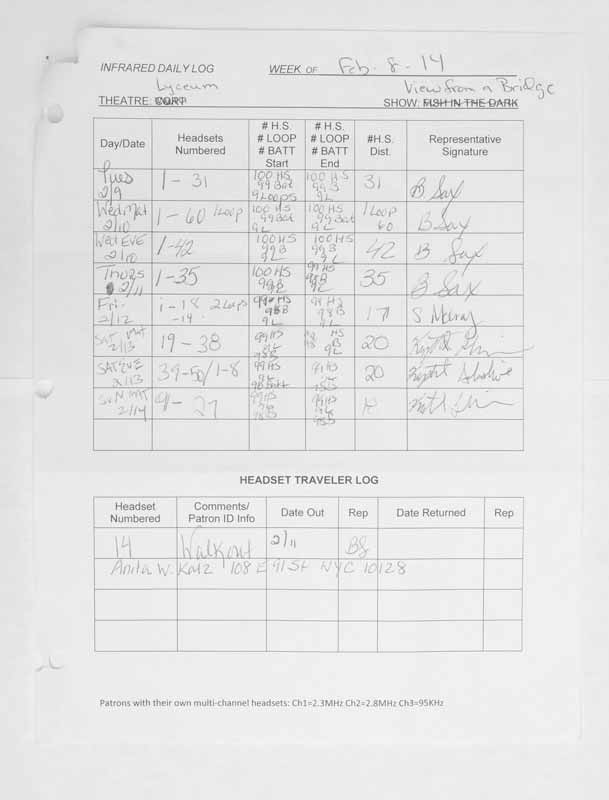 INFRARED DAILY LOG WEEK OF Feb. 8 - 14
Lyceum View from a Bridge
THEATRE: CORT SHOW: FISH IN THE DARK
Day/Date Headsets Numbered # H.S. # LOOP # BATT Start # H.S. # LOOP # BATT End #H.S. Dist. Representative Signature
Tues 2/9 1 - 31 100 HS 99 Bat 9 Loops 100 HS 99 B 9L 31 B Sax
Wed Mat 2/10 1 - 60 1 Loop 100 HS 99 Bat 9L 100 HS 99 Bat 9L 1 Loop 60 B Sax
Wed EVE 2/10 1-42 100 HS 99 B 9L 100 HS 99 B 9L 42 B Sax
Thurs 2/11 1-35 100 HS 99 B 9L 99 HS 98 B 9L 35 B Sax
Fri. 2/12 1 - 18 2 Loops -14- 99 HS 98 B 9L 99 HS 98 B 9L 17 S
Sat Mat 2/13 19 - 38 99 HS 9L 98 B HS B 9L 20
SAT EVE 2/13 39-50/1-8 99 HS 98 Batt 99 HS 98 B 20
SUN MAT 2/14 9 - 27 99 HS 98 B 99 HS 98 B
HEADSET TRAVELER LOG
Headset Numbered Comments/ Patron ID Info Date Out Rep Date Returned Rep
14 Walkout 2/11 BS
Anita W. Katz 108 E 91 St NYC 10128
Patrons with their own multi-channel headsets: Ch1=2.3MHz Ch2=2.8MHz Ch3=95KHz